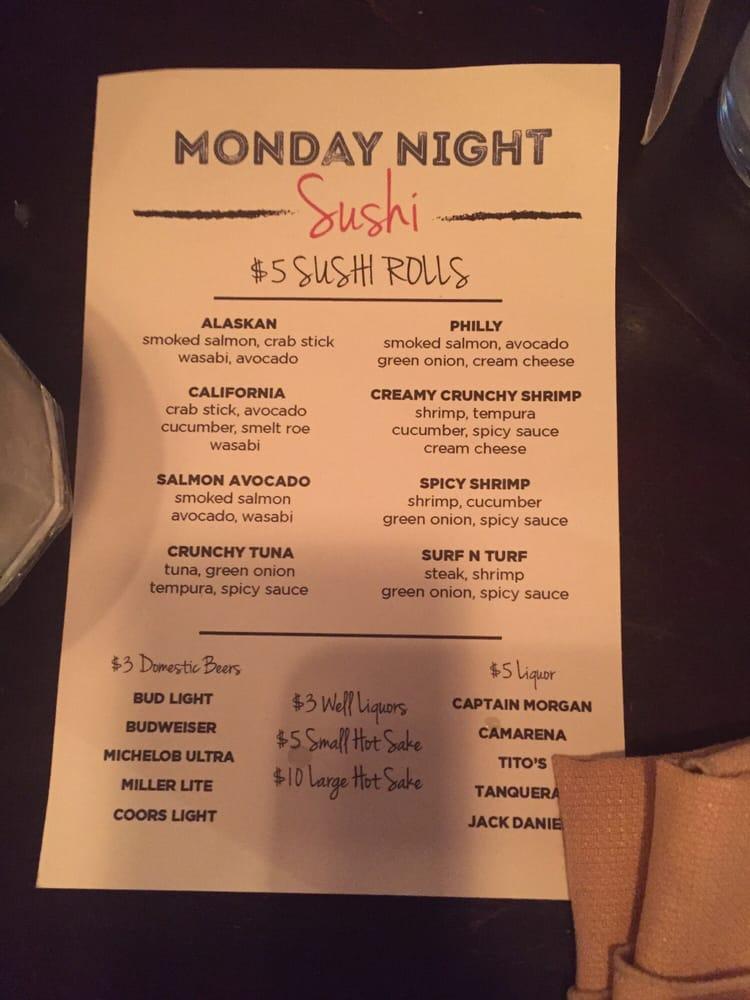 MONDAY NIGHT
Sushi
$5 SUSHI ROLLS
ALASKAN
smoked salmon, crab stick
wasabi, avocado
CALIFORNIA
crab stick, avocado
cucumber, smelt roe
wasabi
SALMON AVOCADO
smoked salmon
avocado, wasabi
CRUNCHY TUNA
tuna, green onion
tempura, spicy sauce
PHILLY
smoked salmon, avocado
green onion, cream cheese
CREAMY CRUNCHY SHRIMP
shrimp, tempura
cucumber, spicy sauce
cream cheese
SPICY SHRIMP
shrimp, cucumber
green onion, spicy sauce
SURF N TURF
steak, shrimp
green onion, spicy sauce
$3 Domestic Beers
BUD LIGHT
BUDWEISER
MICHELOB ULTRA
MILLER LITE
COORS LIGHT
$3 Well Liquors
$5 Small Hot Sake
$10 Large Hot Sake
$5 Liquor
CAPTAIN MORGAN
CAMARENA
TITO'S
TANQUERA
JACK DANIE